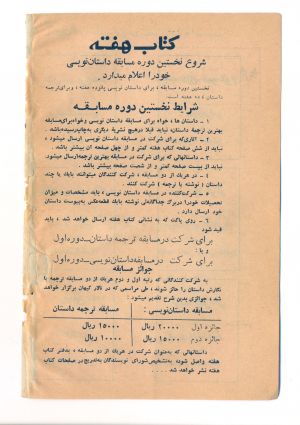 کتاب هفته
شروع نخستین دوره مسابقه داستان‌نویسی
خود را اعلام میدارد.
نخستین دوره مسابقه ، برای داستان نویسی پانزده هفته ، وبرای ترجمه
داستان ده هفته است.
شرایط نخستین دوره مسابقه
۱ – داستان ها ، خواه برای مسابقه داستان نویسی وخواه برای مسابقه
بهترین ترجمه داستان نباید قبلا درهیچ نشریهٔ دیگری بچاپ رسیده باشد.
۲ – آثاری که برای شرکت در مسابقه داستان نویسی ارسال میشود ،
نباید از شش صفحه کتاب هفته کمتر و از چهل صفحه آن بیشتر باشد.
۳ – داستانهائی که برای شرکت در مسابقه بهترین ترجمه ارسال میشود.
نباید از بیست صفحه کمتر و از شصت صفحه بیشتر باشد.
۴ – در هریک از دو مسابقه ، شرکت کنندگان میتوانند بایک یا چند
داستان ( نوشته یا ترجمه ) شرکت کنند.
۵ – شرکت‌کننده در مسابقه داستان نویسی ، باید مشخصات و میزان
تحصیلات خودرا دربرگ جداگانه‌ای نوشته باید قطعه عکس به پیوست داستان
خود ارسال دارد.
۶ – روی پاکت که به نشانی کتاب هفته ارسال خواهد شد ، باید
قید شود :
برای شرکت در مسابقه ترجمه داستان – دوره اول
و یا :
برای شرکت در مسابقه داستان نویسی – دوره اول
جوائز مسابقه
به شرکت کنندگانی که رتبه اول و دوم هریک از دو مسابقه ترجمه یا
نگارش داستان را حائز شوند ، طی مراسمی که در تالار کیهان برگزار خواهد
شد ، جوائزی بدین شرح تقدیم میشود :
مسابقه داستان‌نویسی : مسابقه ترجمه داستان
جائزه اول ۲۰۰۰۰ ریال ۱۵۰۰۰ ریال
جائزه دوم ۱۵۰۰۰ ریال ۱۰۰۰۰ ریال
داستانهائی که بعنوان شرکت در هریک از دو مسابقه ، بدفتر کتاب
هفته واصل شود، به تشخیص شورای نویسندگان به تدریج در صفحات کتاب
هفته نشر خواهد شد ...